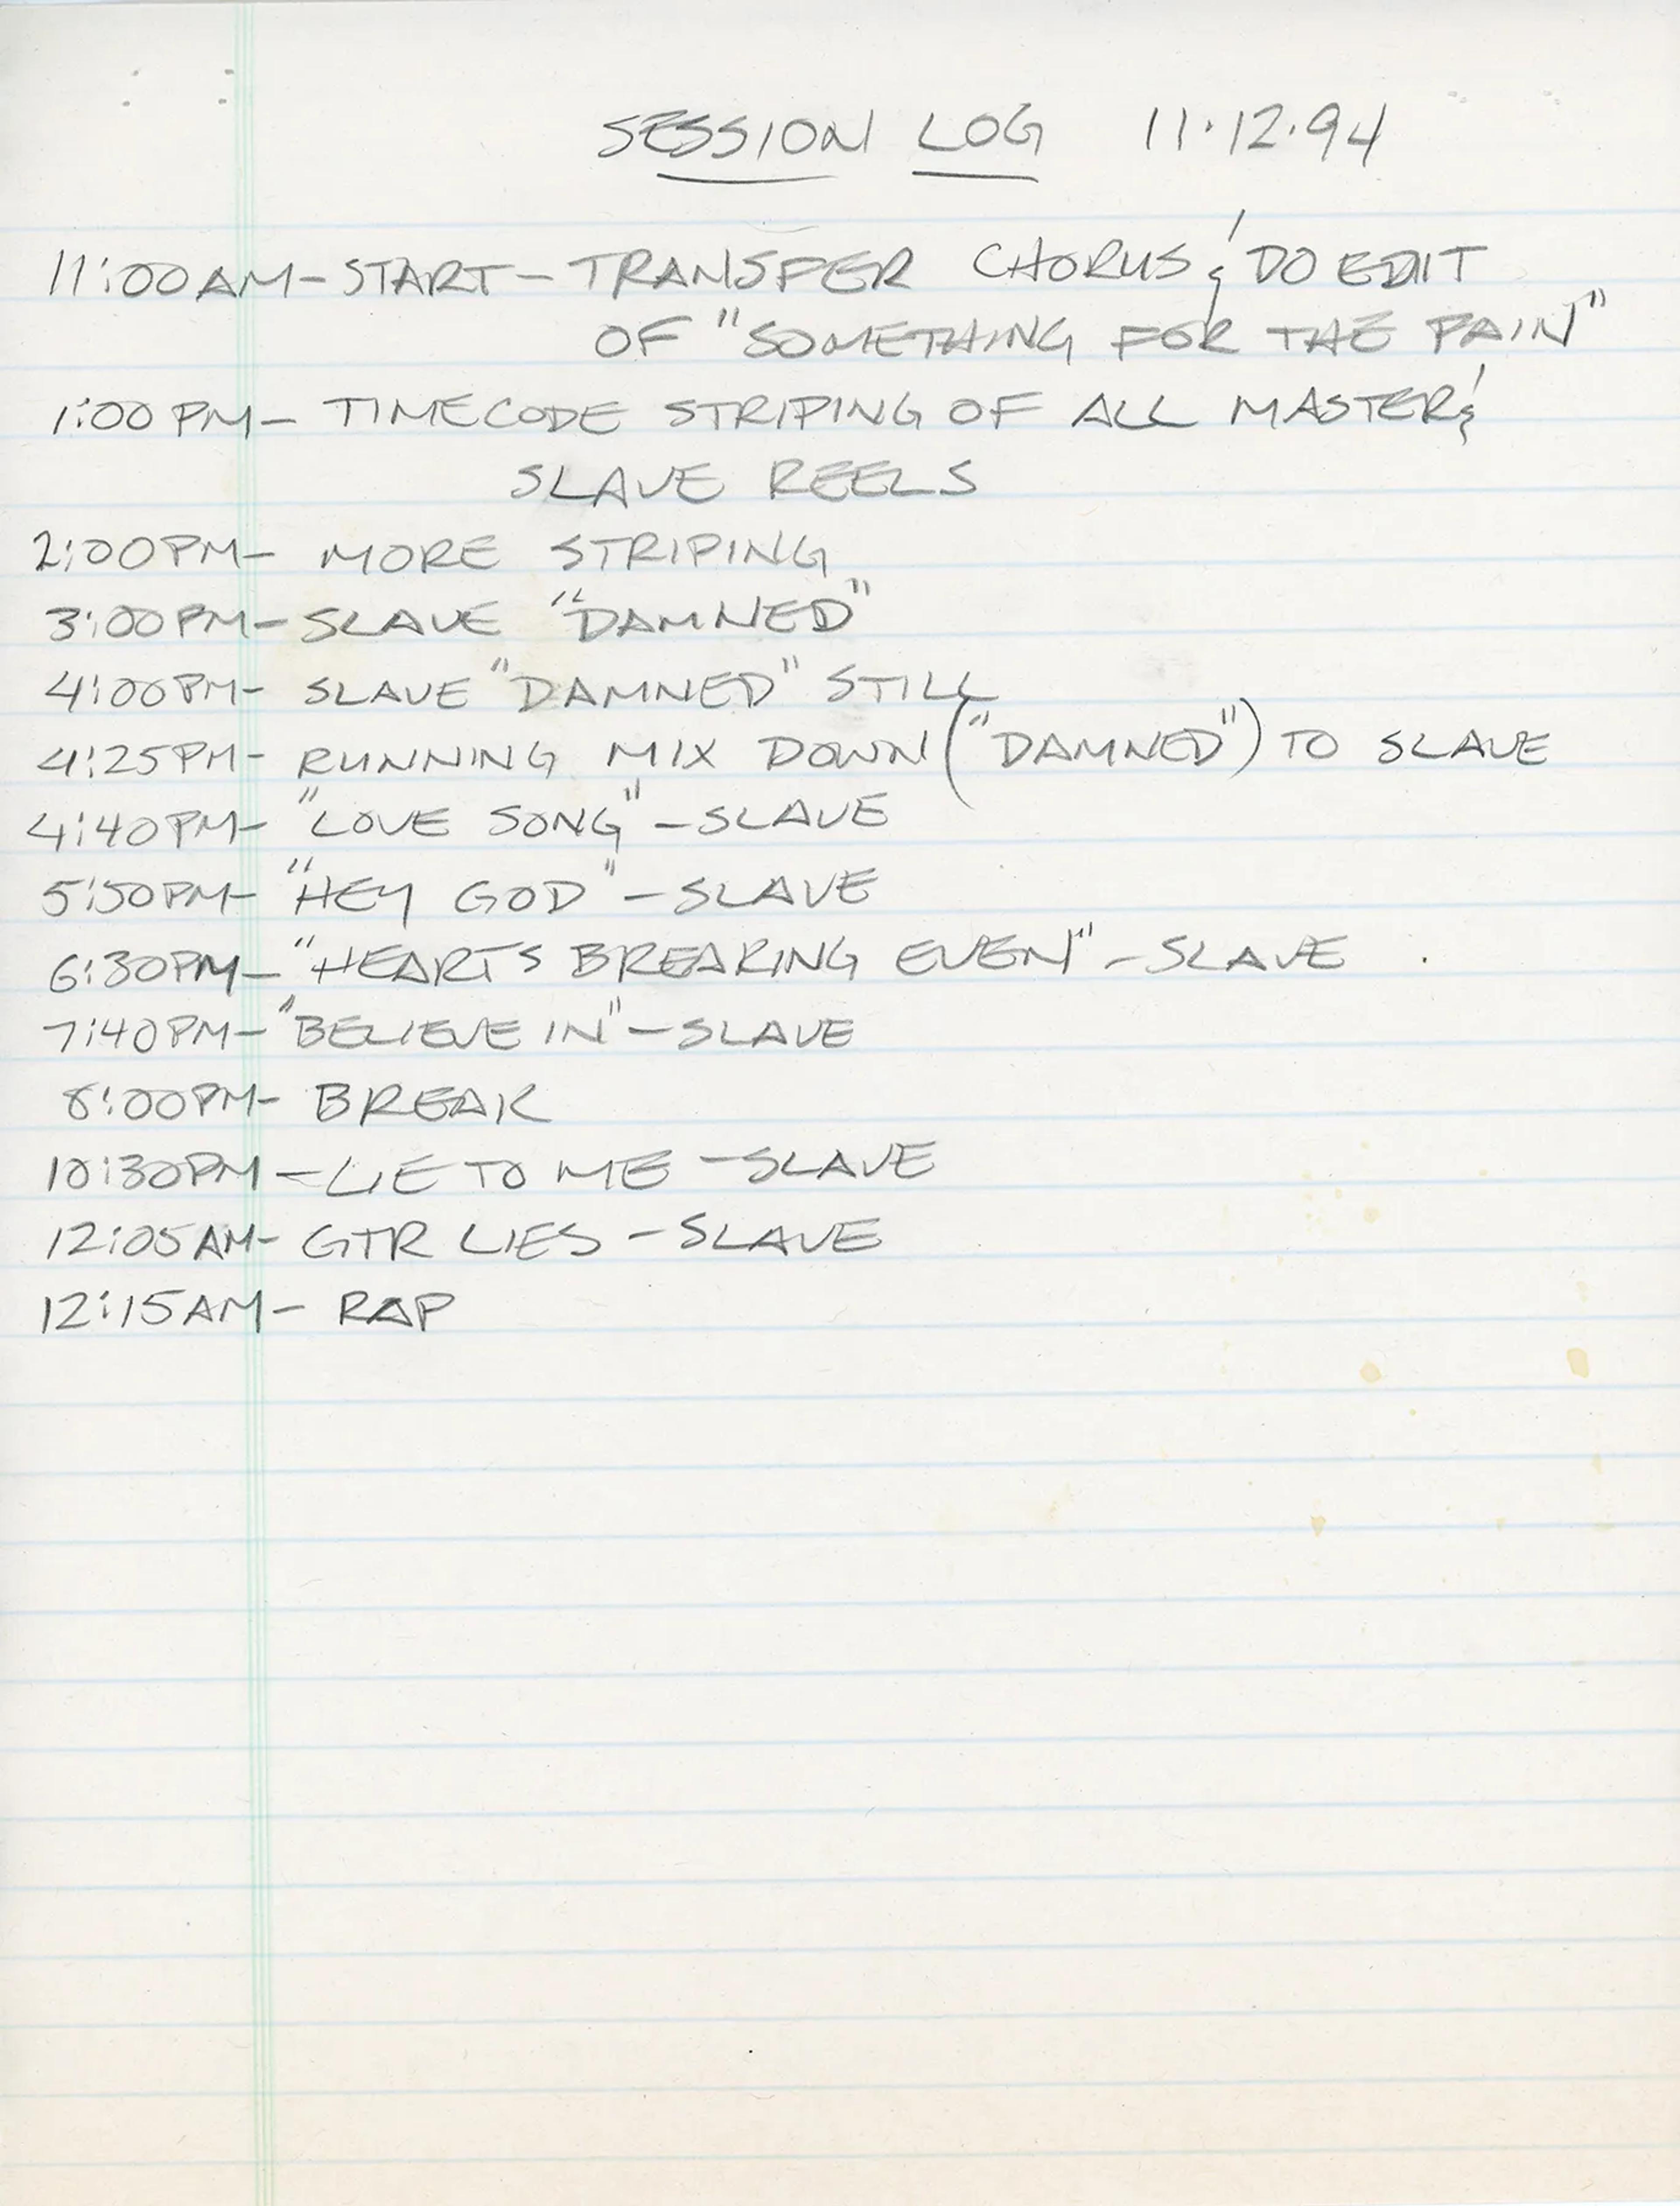 SESSION LOG 11·12·94
11:00AM-START-TRANSFER CHORUS & DO EDIT
OF "SOMETHING FOR THE PAIN"
1:00PM- TIMECODE STRIPING OF ALL MASTER &
SLAVE REELS
2:00PM- MORE STRIPING
3:00PM- SLAVE "DAMNED"
4:00PM- SLAVE "DAMNED" STILL
4:25PM- RUNNING MIX DOWN ("DAMNED") TO SLAVE
4:40PM- "LOVE SONG" -SLAVE
5:50PM- "HEY GOD" -SLAVE
6:30PM- "HEARTS BREAKING EVEN" -SLAVE
7:40PM- "BELIEVE IN" -SLAVE
8:00PM- BREAK
10:30PM -LIE TO ME -SLAVE
12:05AM- GTR LIES -SLAVE
12:15AM- RAP